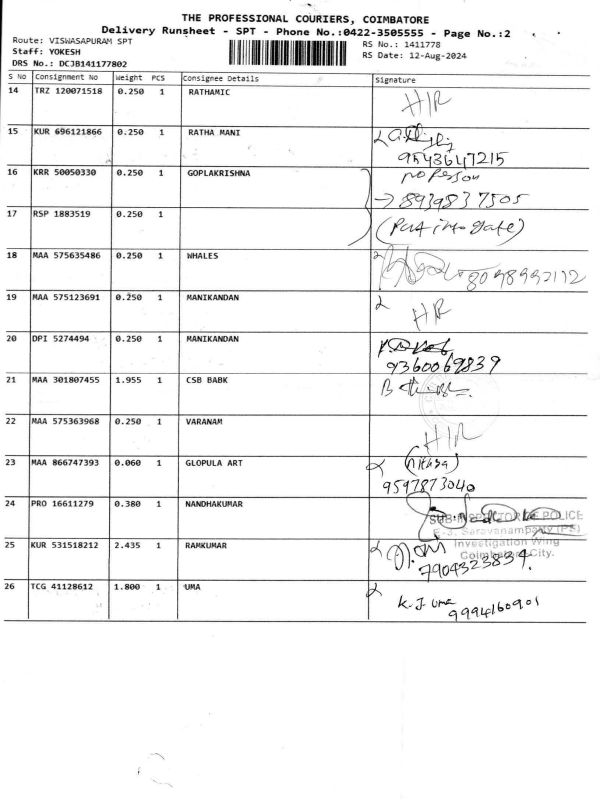 THE PROFESSIONAL COURIERS, COIMBATORE
Delivery Runsheet - SPT - Phone No.:0422-3505555 - Page No.:2
Route: VISWASAPURAM SPT
RS No.: 1411778
Staff: YOKESH
RS Date: 12-Aug-2024
DRS No.: DCJB141177802
S No Consignment No Weight PCS Consignee Details Signature
14 TRZ 120071518 0.250 1 RATHAMIC H/R
15 KUR 696121866 0.250 1 RATHA MANI
9543647215
16 KRR 50050330 0.250 1 GOPLAKRISHNA no Person
→ 8939837505
17 RSP 1883519 0.250 1 (Put into gate)
18 MAA 575635486 0.250 1 WHALES
8098992112
19 MAA 575123691 0.250 1 MANIKANDAN H/R
20 DPI 5274494 0.250 1 MANIKANDAN
9360069839
21 MAA 301807455 1.955 1 CSB BABK
22 MAA 575363968 0.250 1 VARANAM H/R
23 MAA 866747393 0.060 1 GLOPULA ART (Nithya)
9597873040
24 PRO 16611279 0.380 1 NANDHAKUMAR
SUB-INSPECTOR OF POLICE
E-3, Saravanampatty (PS)
Investigation Wing
Coimbatore City.
25 KUR 531518212 2.435 1 RAMKUMAR
7904323834.
26 TCG 41128612 1.800 1 UMA K.J uma
9994160901